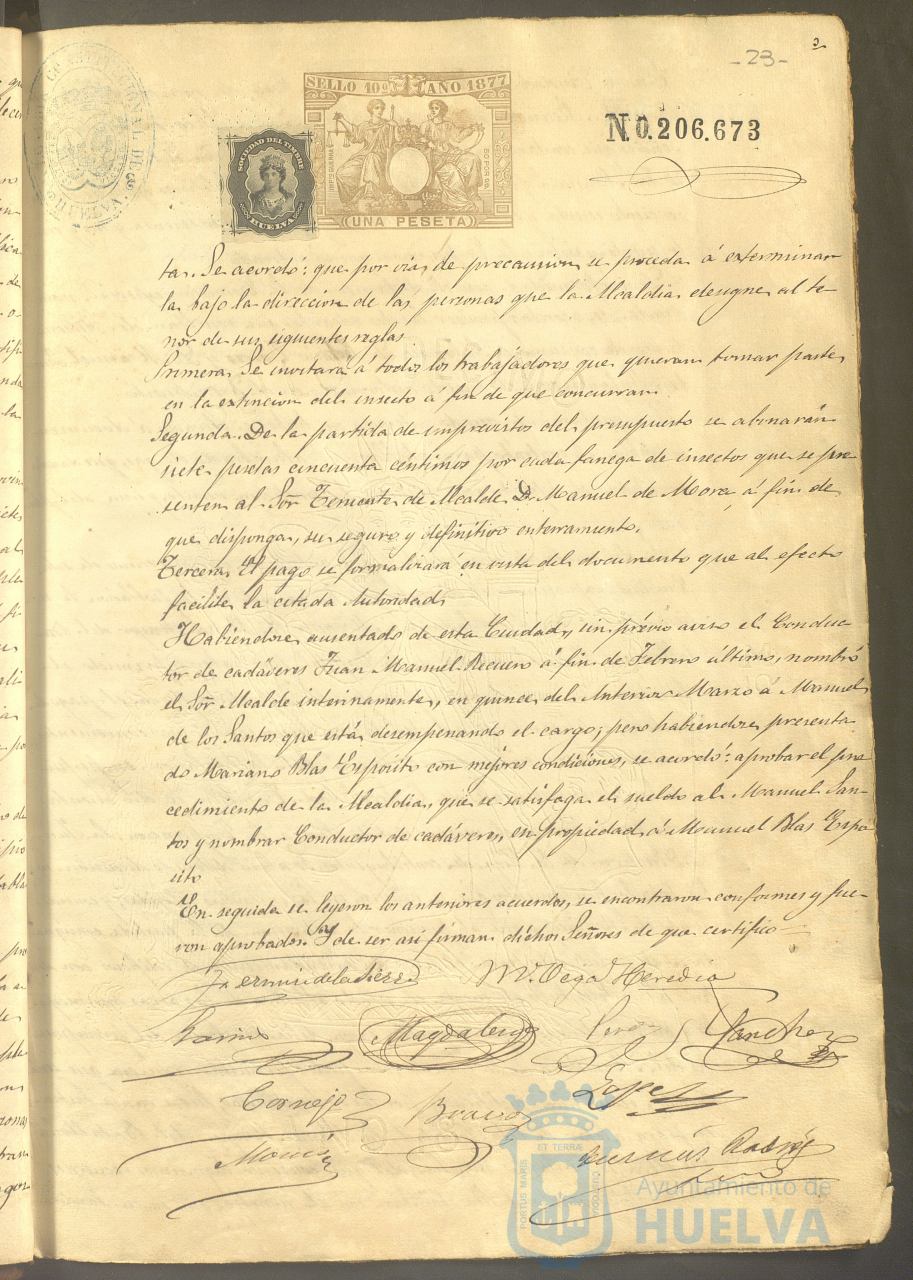 -23-
SELLO 10º AÑO 1877
SOCIEDAD DEL TIMBRE
HUELVA
UNA PESETA
N.0.206.673
HUELVA
ta. Se acordó: que por via de precaucion se proceda á exterminar
la bajo la direccion de las personas que la Alcaldia designe al te
nor de sus siguientes reglas.
Primera. Se invitará á todos los trabajadores que quieran tomar parte
en la extincion del insecto á fin de que concurran.
Segunda. De la partida de imprevistos del presupuesto se abonarán
siete pesetas cincuenta céntimos por cada fanega de insectos que se pre
senten al Sor. Teniente de Alcalde D. Manuel de Mora á fin de
que disponga su seguro y definitivo enterramiento.
Tercera. El pago se formalizará en vista del documento que al efecto
facilite la citada Autoridad.
Habiendose ausentado de esta Ciudad, sin prévio aviso el Conduc-
tor de cadáveres Juan Manuel Recuero á fin de Febrero último, nombró
el Sor. Alcalde interinamente, en quince del Anterior Marzo á Manuel
de los Santos que está desempeñando el cargo; pero habiendose presenta
do Mariano Blas Expósito con mejores condiciones, se acordó: aprobar el pro
cedimiento de la Alcaldia, que se satisfaga el sueldo al Manuel San-
tos y nombrar Conductor de cadáveres, en propiedad, á Manuel Blas Expó
sito
En seguida se leyeron los anteriores acuerdos, se encontraron conformes y fue-
ron aprobados. Y de ser asi firman dichos Señores de que certifico
Fermin de la Sierra M. Vega Heredia
Magdalena Perez Sanchez
Cornejo Bravo Lopez
PORTUS MARIS ET TERRÆ CUSTODIA
Ayuntamiento de
HUELVA